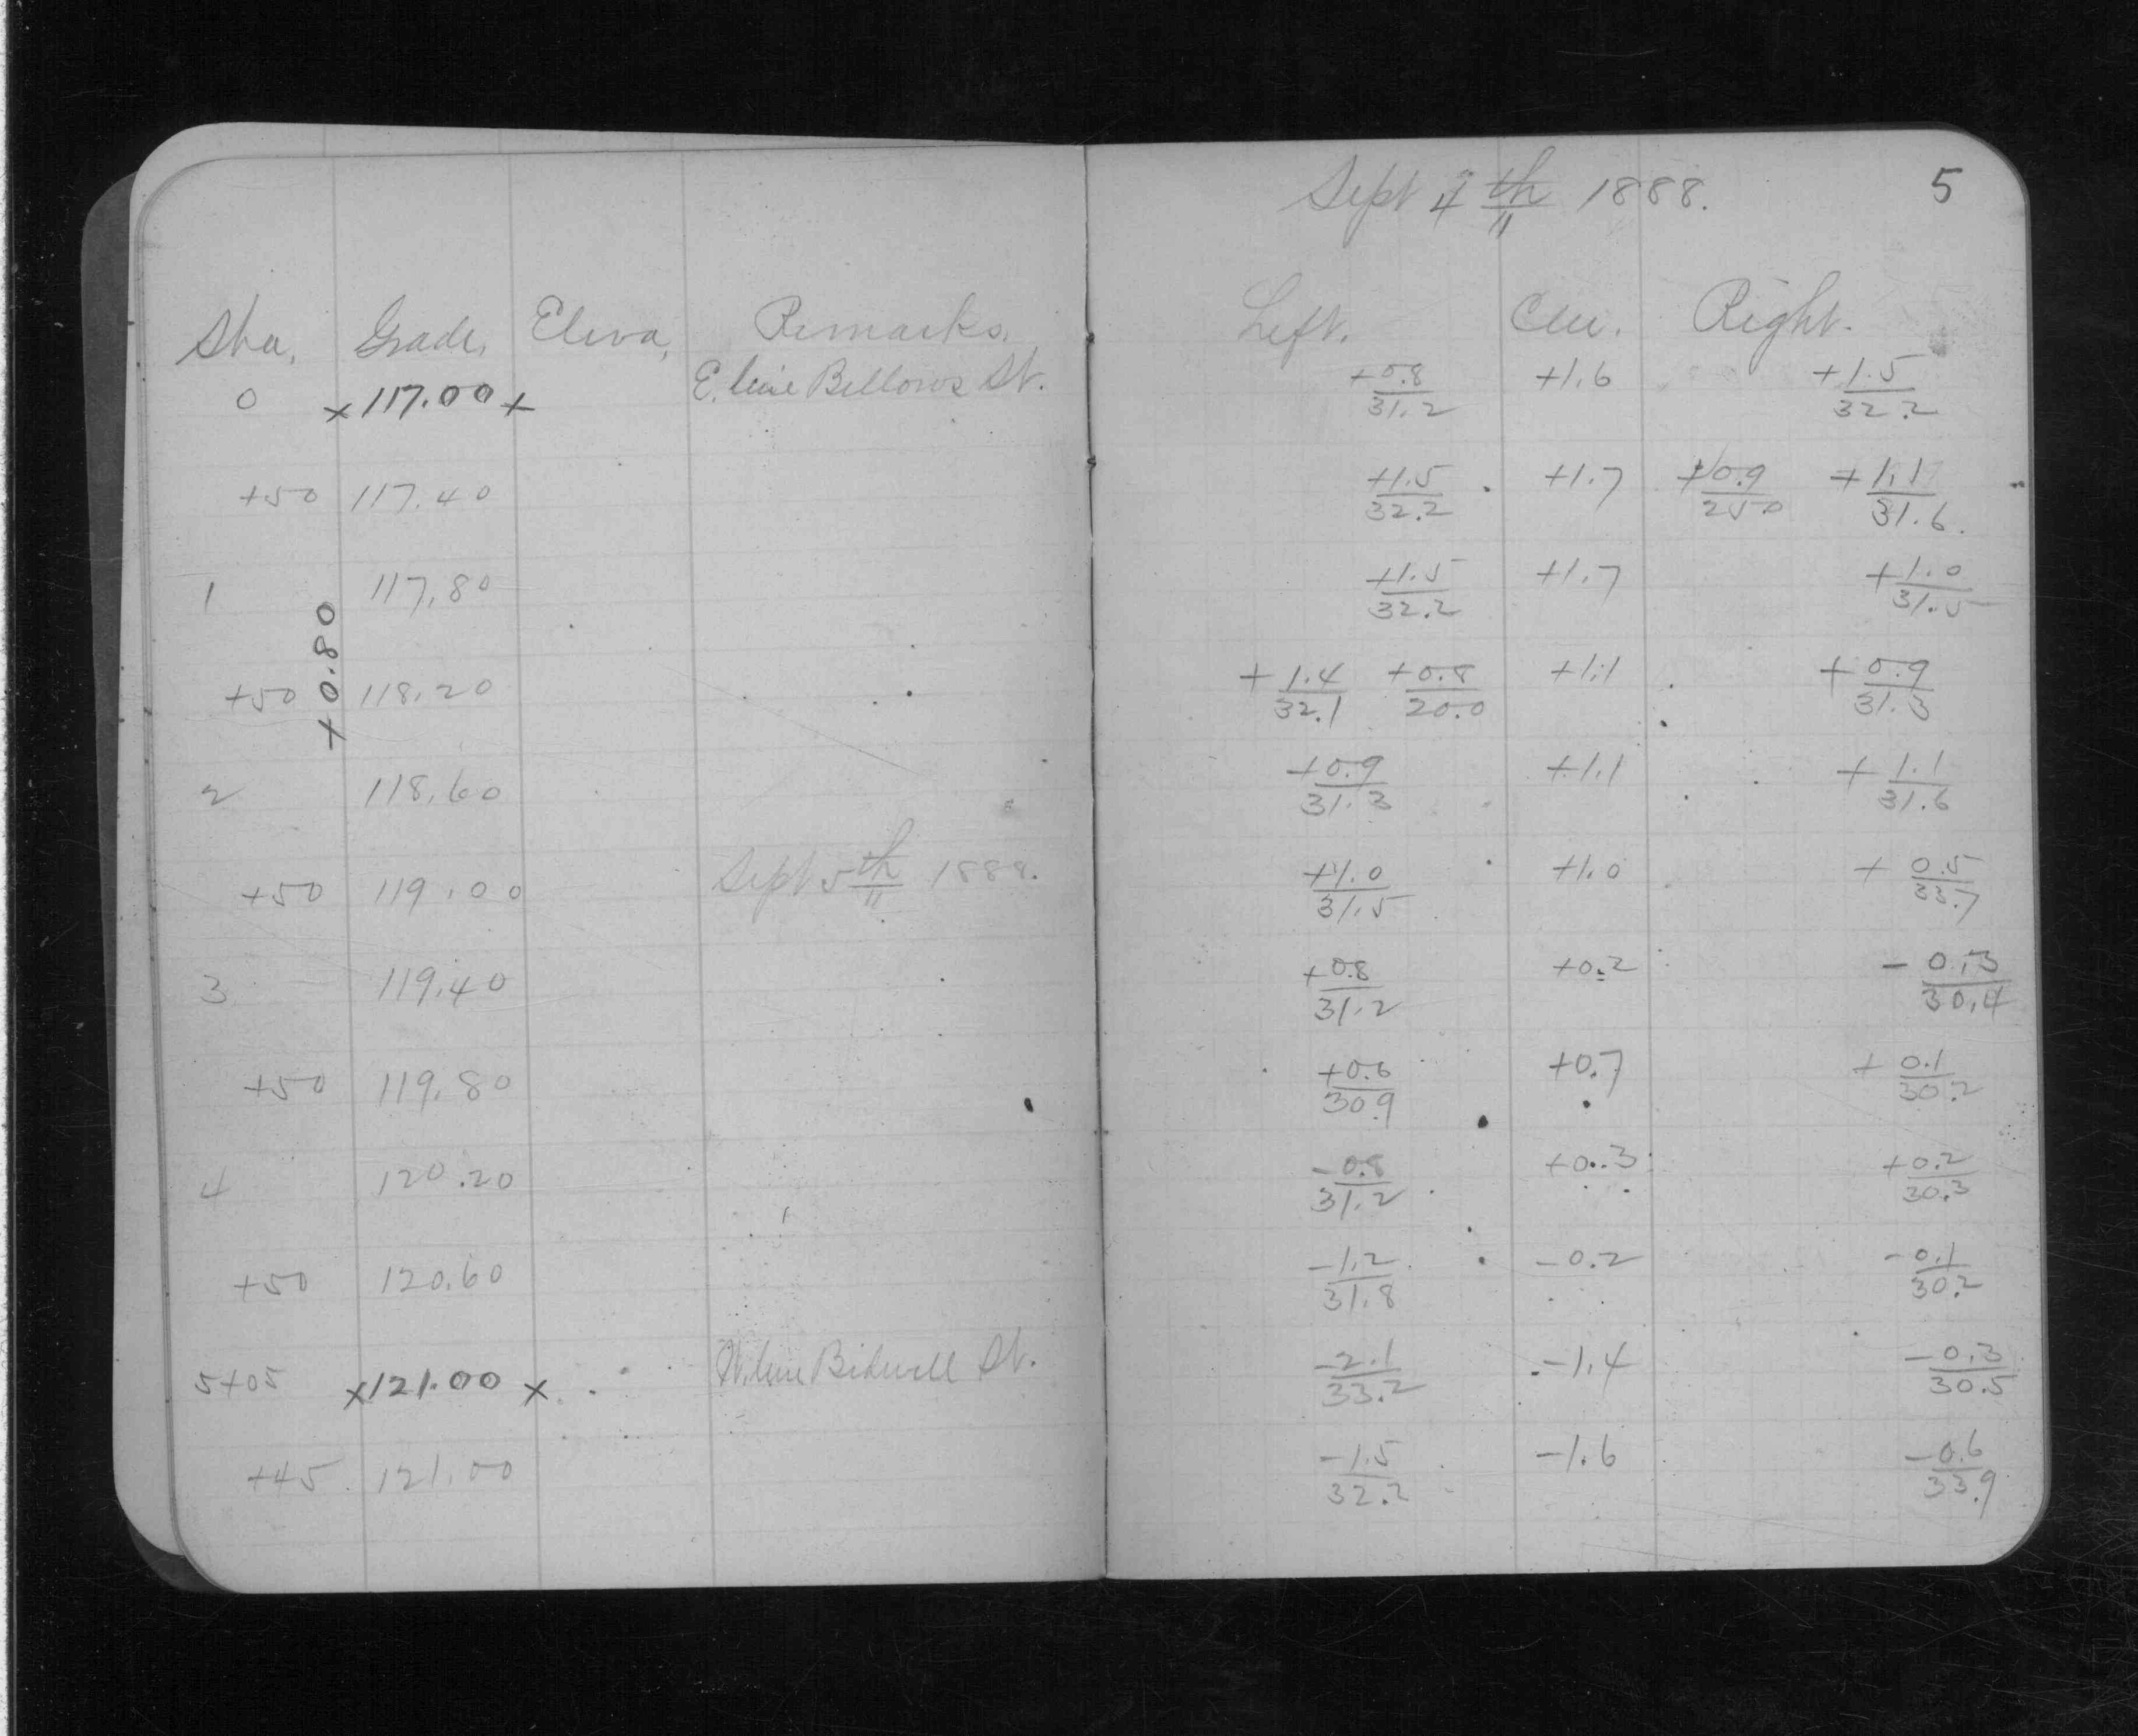 Sept 4th 1888. 5
Sta. Grade. Eleva. Remarks. Left. Cen. Right.
0 x 117.00 + E. line Bellows St. +0.8/31.2 +1.6 +1.5/32.2
+50 117.40 +1.5/32.2 +1.7 +0.9/25.0 +1.1/31.6
1 117.80 +1.5/32.2 +1.7 +1.0/31.5
+0.80
+50 118.20 +1.4/32.1 +0.8/20.0 +1.1 +0.9/31.3
2 118.60 +0.9/31.3 +1.1 +1.1/31.6
+50 119.00 Sept 5th 1888. +1.0/31.5 +1.0 +0.5/33.7
3 119.40 +0.8/31.2 +0.2 -0.3/30.4
+50 119.80 +0.6/30.9 +0.7 +0.1/30.2
4 120.20 -0.8/31.2 +0.3 +0.2/30.3
+50 120.60 -1.2/31.8 -0.2 -0.1/30.2
5+05 x 121.00 x W. line Bidwell St. -2.1/33.2 -1.4 -0.3/30.5
+45 121.00 -1.5/32.2 -1.6 -0.6/33.9